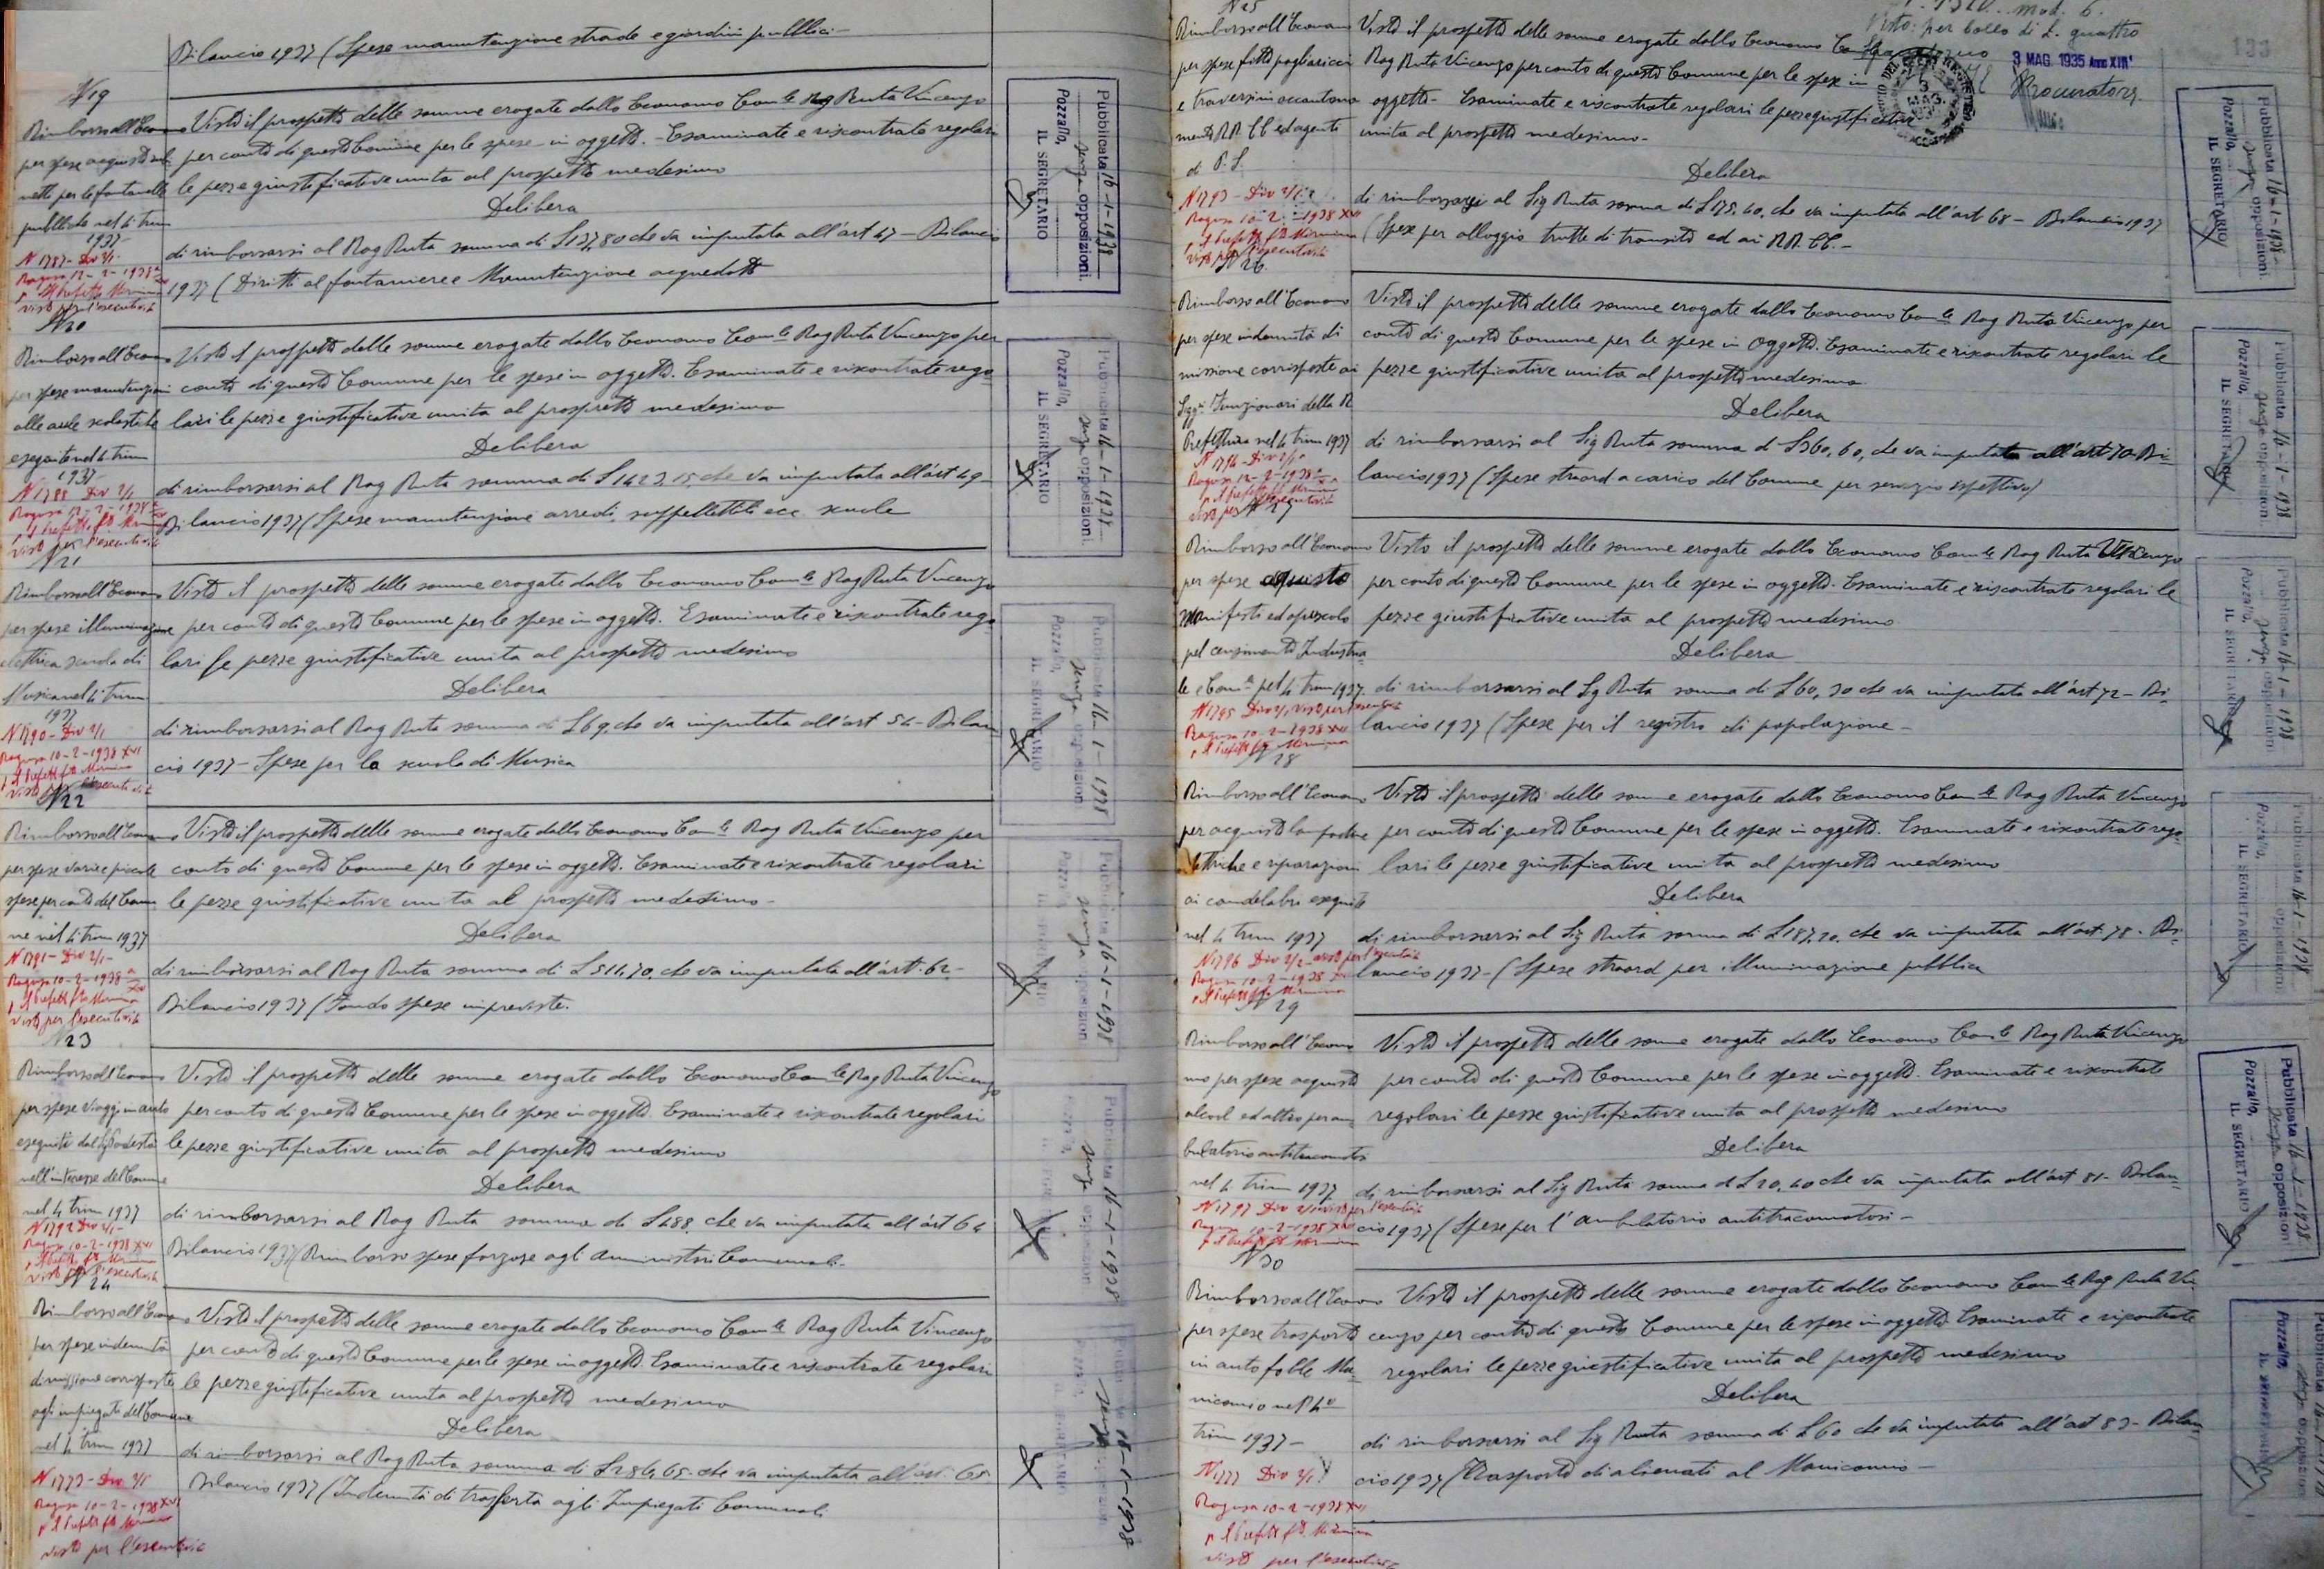 Bilancio 1937 (Spese manutenzione strade e giardini pubblici -
N 19
Rimborso all'Econo
per spese acquisto
nette per le fontanelle
pubbliche nel 4 trim
1937 -
N 1787 - Div 2/1 -
Ragusa 12 - 2 - 1938
p Il Prefetto Mormina
visto per l'esecutività
Visto il prospetto delle somme erogate dallo Economo Com.le Rag Ruta Vincenzo
per conto di questo Comune per le spese in oggetto. - Esaminate e riscontrate regolari
le pezze giustificative unita al prospetto medesimo
Delibera
di rimborsarsi al Rag Ruta somma di L 137,80 che va imputata all'art 47 - Bilancio
1937 (Diritti al fontaniere e Manutenzione acquedotto
Pubblicata 16-1-1938
senza opposizioni.
Pozzallo,
IL SEGRETARIO
N 20
Rimborso all'Econo
per spese manutenzioni
alle aule scolastiche
eseguite nel 4 trim
1937 -
N 1788 Div 2/1
Ragusa 12-2-1938
p Il Prefetto fto Mormina
visto per l'esecutività
Visto il prospetto delle somme erogate dallo Economo Com.le Rag Ruta Vincenzo per
conto di questo Comune per le spese in oggetto. Esaminate e riscontrate rego-
lari le pezze giustificative unita al prospetto medesimo
Delibera
di rimborsarsi al Rag Ruta somma di L 1423,15, che va imputata all'art 49 -
Bilancio 1937 (Spese manutenzione arredi, suppellettili ecc. scuole
Pubblicata 16-1-1938
senza opposizioni.
Pozzallo,
IL SEGRETARIO
N 21
Rimborso all'Econom
per spese illuminazione
elettrica scuola di
Musica nel 4 trim
1937
N 1790 - Div 2/1
Ragusa 10-2-1938 XVI
p Il Prefetto fto Mormina
visto per l'esecutività
Visto il prospetto delle somme erogate dallo Economo Com.le Rag Ruta Vincenzo
per conto di questo Comune per le spese in oggetto. Esaminate e riscontrate rego-
lari le pezze giustificative unita al prospetto medesimo
Delibera
di rimborsarsi al Rag Ruta somma di L 69, che va imputata all'art 54 - Bilan
cio 1937 - Spese per la scuola di Musica
Pubblicata 16-1-1938
senza opposizioni
Pozzallo,
IL SEGRETARIO
N 22
Rimborso all'Econom
per spese varie e piccole
spese per conto del Comu
ne nel 4 trim 1937
N 1791 - Div 2/1 -
Ragusa 10-2-1938
p Il Prefetto fto Mormina
visto per l'esecutività
Visto il prospetto delle somme erogate dallo Economo Com.le Rag Ruta Vincenzo per
conto di questo Comune per le spese in oggetto. Esaminate e riscontrate regolari
le pezze giustificative unita al prospetto medesimo -
Delibera
di rimborsarsi al Rag Ruta somma di L 514,70, che va imputata all'art. 62 -
Bilancio 1937 (Fondo spese impreviste.
Pubblicata 16-1-1938
senza opposizioni
N 23
Rimborso all'Econo
per spese viaggi in auto
eseguiti dal Podestà
nell'interesse del Comune
nel 4 trim 1937
N 1792 Div 2/1 -
Ragusa 10-2-1938 XVI
p Il Prefetto fto Mormina
visto per l'esecutività
Visto il prospetto delle somme erogate dallo Economo Com.le Rag Ruta Vincenzo
per conto di questo Comune per le spese in oggetto. Esaminate e riscontrate regolari
le pezze giustificative unita al prospetto medesimo
Delibera
di rimborsarsi al Rag Ruta somma di L 488, che va imputata all'art 64
Bilancio 1937 (Rimborso spese forzose agli Amministri Comunali.
Pubblicata 16-1-1938
senza opposizioni
N 24
Rimborso all'Econ
per spese indennità
di missione corrisposte
agli impiegati del Comune
nel 4 trim 1937
N 1773 - Div 2/1
Ragusa 10-2-1938 XVI
p Il Prefetto fto Mormina
visto per l'esecutività
Visto il prospetto delle somme erogate dallo Economo Com.le Rag Ruta Vincenzo
per conto di questo Comune per le spese in oggetto. Esaminate e riscontrate regolari
le pezze giustificative unita al prospetto medesimo
Delibera
di rimborsarsi al Rag Ruta somma di L 284,65, che va imputata all'art. 65
Bilancio 1937 (Indennità di trasferta agli Impiegati Comunali
16-1-1938
senza
N 25
mod. 6.
Visto: per bollo di L. quattro
3 MAG 1935 Anno XIII°
Procuratore
133
Rimborso all'Econom
per spese fitto pagliaricci
e traversini accantona
mento RR. CC ed agenti
di P. S.
N 1793 - Div 2/1
Ragusa 10-2-1938 XVI
p Il Prefetto fto Mormina
visto per l'esecutività
Visto il prospetto delle somme erogate dallo Economo
Rag Ruta Vincenzo per conto di questo Comune per le spese in
oggetto - Esaminate e riscontrate regolari le pezze giustificative
unita al prospetto medesimo -
Delibera
di rimborsarsi al Sig Ruta somma di L 175,40, che va imputata all'art 68 - Bilancio 1937
(Spese per alloggio truppe di transito ed ai RR. CC. -
Pubblicata 16-1-1938
senza opposizioni.
Pozzallo,
IL SEGRETARIO
N 26
Rimborso all'Economo
per spese indennità di
missione corrisposte ai
Sigg.ri Funzionari della R
Prefettura nel 4 trim 1937
N 1794 - Div 2/1
Ragusa 12-2-1938
p Il Prefetto fto Mormina
visto per l'esecutività
Visto il prospetto delle somme erogate dallo Economo Com.le Rag Ruta Vincenzo per
conto di questo Comune per le spese in oggetto. Esaminate e riscontrate regolari le
pezze giustificative unita al prospetto medesimo
Delibera
di rimborsarsi al Sig Ruta somma di L 360,60, che va imputata all'art 70 - Bi-
lancio 1937 (Spese straord. a carico del Comune per servizio ispettivo)
Pubblicata 16-1-1938
senza opposizioni.
Pozzallo,
IL SEGRETARIO
N 27
Rimborso all'Economo
per spese acquisto
manifesti ed opuscolo
pel censimento Industria-
le e Comm.le pel 4 trim 1937.
N 1795 Div 2/1 visto per l'esecutività
Ragusa 10-2-1938 XVI
p Il Prefetto fto Mormina
Visto il prospetto delle somme erogate dallo Economo Com.le Rag Ruta Vincenzo
per conto di questo Comune per le spese in oggetto. Esaminate e riscontrate regolari le
pezze giustificative unita al prospetto medesimo
Delibera
di rimborsarsi al Sig Ruta somma di L 60,30 che va imputata all'art 72 - Bi-
lancio 1937 (Spese per il registro di popolazione -
Pubblicata 16-1-1938
senza opposizioni
Pozzallo,
IL SEGRETARIO
N 28
Rimborso all'Econom
per acquisto lampadine
elettriche e riparazioni
ai candelabri eseguite
nel 4 trim 1937
N 1796 Div 2/2 - visto per l'esecutività
Ragusa 10-2-1938 XVI
p Il Prefetto fto Mormina
Visto il prospetto delle somme erogate dallo Economo Com.le Rag Ruta Vincenzo
per conto di questo Comune per le spese in oggetto. Esaminate e riscontrate rego-
lari le pezze giustificative unita al prospetto medesimo
Delibera
di rimborsarsi al Sig Ruta somma di L 187,20, che va imputata all'art. 78 - Bi-
lancio 1937 - (Spese straord per illuminazione pubblica
Pubblicata 16-1-1938
opposizioni
Pozzallo,
IL SEGRETARIO
N 29
Rimborso all'Econo
mo per spese acquisto
alcool ed altro per am
bulatorio antitracomatoso
nel 4 trim 1937
N 1797 Div 2/1 visto per l'esecutività
Ragusa 10-2-1938 XVI
p Il Prefetto fto Mormina
Visto il prospetto delle somme erogate dallo Economo Com.le Rag Ruta Vincenzo
per conto di questo Comune per le spese in oggetto. Esaminate e riscontrate
regolari le pezze giustificative unita al prospetto medesimo
Delibera
di rimborsarsi al Sig Ruta somma di L 20,40 che va imputata all'art 81 - Bilan-
cio 1937 (Spese per l'ambulatorio antitracomatosi -
Pubblicata 16-1-1938
senza opposizioni
Pozzallo,
IL SEGRETARIO
N 30
Rimborso all'Econom
per spese trasporto
in auto folle Ma-
nicomio nel 4°
trim 1937 -
N 1777 Div 2/1
Ragusa 10-2-1938 XVI
p Il Prefetto fto Mormina
visto per l'esecutività
Visto il prospetto delle somme erogate dallo Economo Com.le Rag Ruta Vin
cenzo per conto di questo Comune per le spese in oggetto. Esaminate e riscontrate
regolari le pezze giustificative unita al prospetto medesimo
Delibera
di rimborsarsi al Sig Ruta somma di L 60 che va imputata all'art 83 - Bilan-
cio 1937 (Trasporto di alienati al Manicomio -
opposizioni
Pozzallo,
IL SEGRETARIO